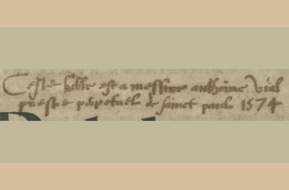 Ceste bible est a messire anthoine Vial
prestre perpetuel de sainct paul 1574